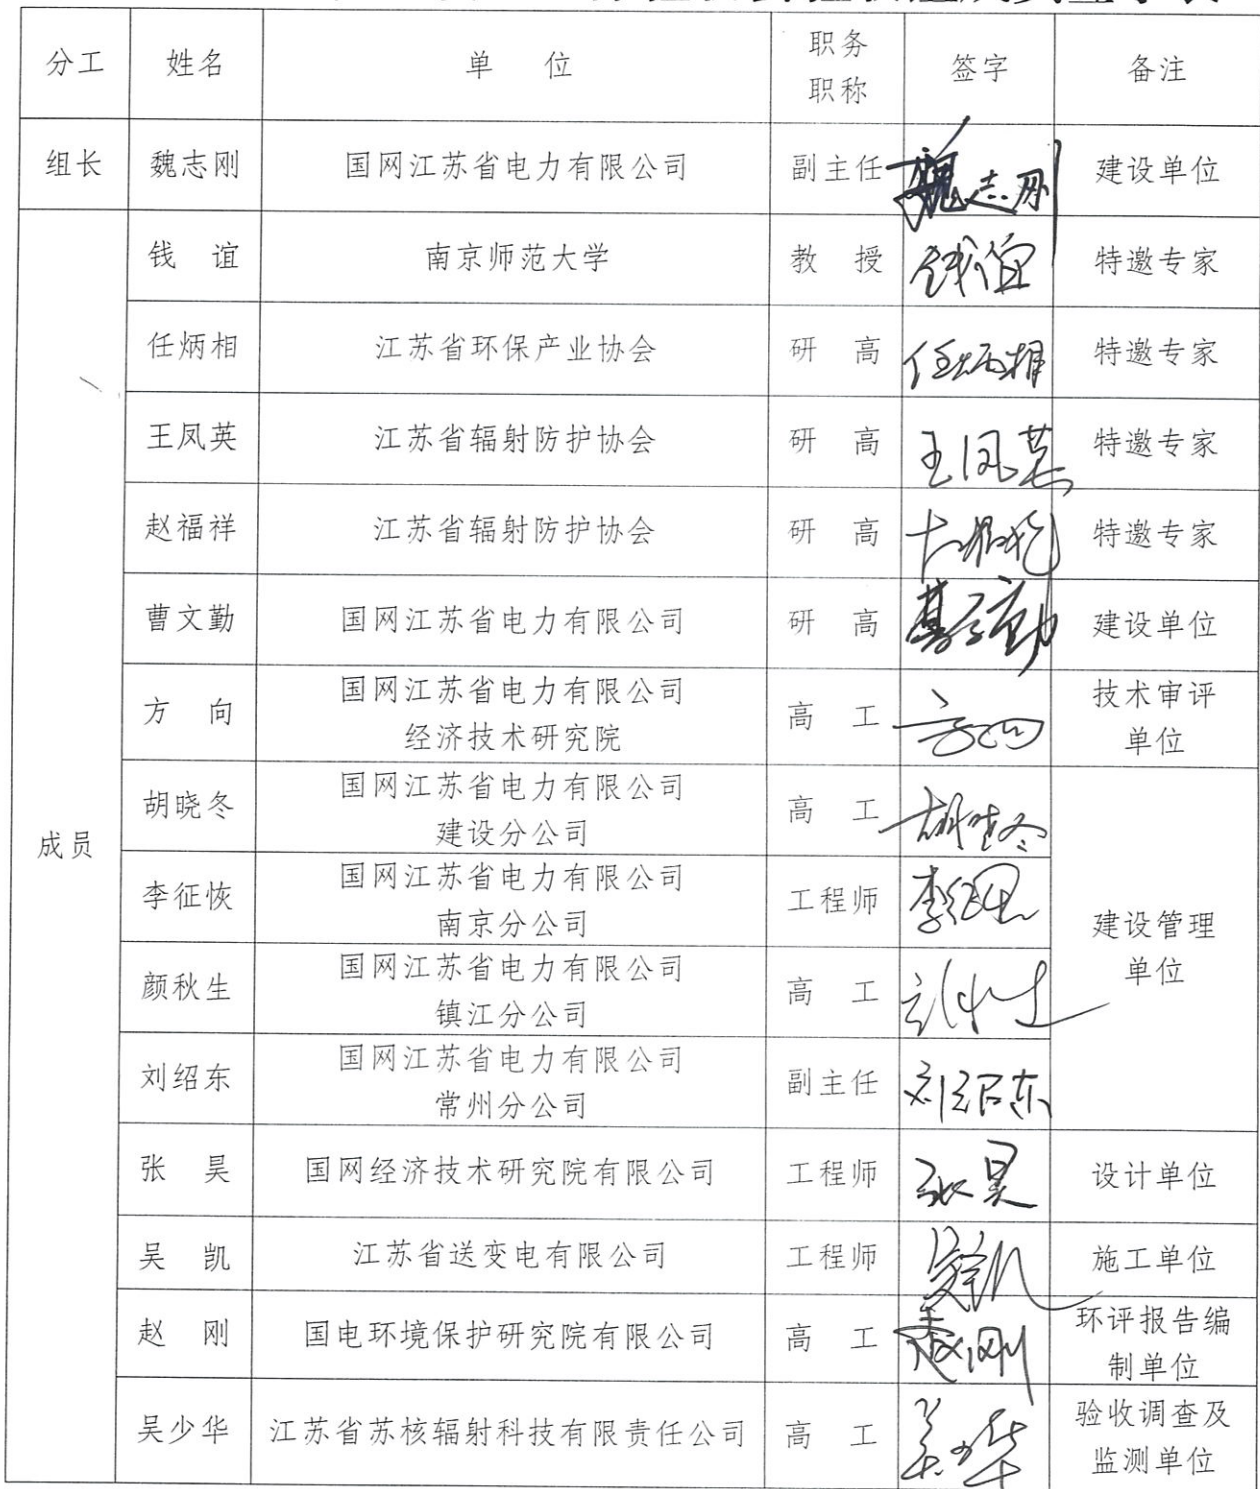 分工 姓名 单 位 职务 签字 备注
职称
组长 魏志刚 国网江苏省电力有限公司 副主任 魏志刚 建设单位
钱 谊 南京师范大学 教 授 钱谊 特邀专家
任炳相 江苏省环保产业协会 研 高 任炳相 特邀专家
王凤英 江苏省辐射防护协会 研 高 王凤英 特邀专家
赵福祥 江苏省辐射防护协会 研 高 特邀专家
曹文勤 国网江苏省电力有限公司 研 高 建设单位
方 向 国网江苏省电力有限公司 高 工 方向 技术审评
经济技术研究院 单位
成员
胡晓冬 国网江苏省电力有限公司 高 工 胡晓冬
建设分公司
李征恢 国网江苏省电力有限公司 工程师 建设管理
南京分公司 单位
颜秋生 国网江苏省电力有限公司 高 工
镇江分公司
刘绍东 国网江苏省电力有限公司 副主任 刘绍东
常州分公司
张 昊 国网经济技术研究院有限公司 工程师 张昊 设计单位
吴 凯 江苏省送变电有限公司 工程师 施工单位
赵 刚 国电环境保护研究院有限公司 高 工 赵刚 环评报告编
制单位
吴少华 江苏省苏核辐射科技有限责任公司 高 工 吴少华 验收调查及
监测单位